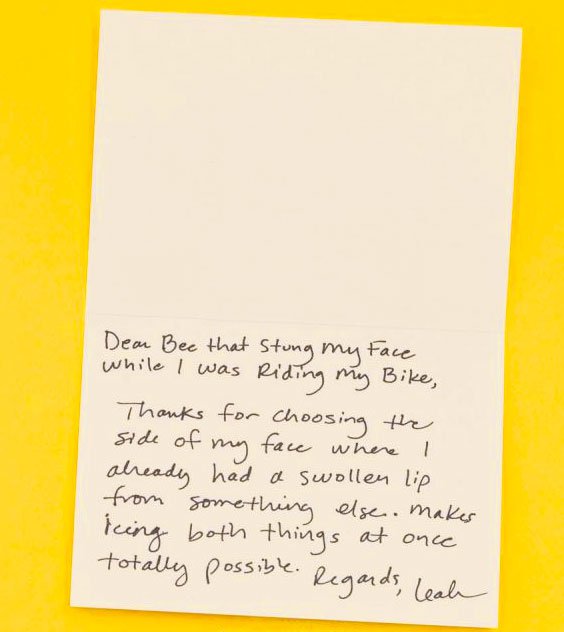 Dear Bee that Stung My Face
while I was Riding My Bike,
Thanks for choosing the
side of my face where I
already had a swollen lip
from something else. Makes
icing both things at once
totally possible. Regards, Leah